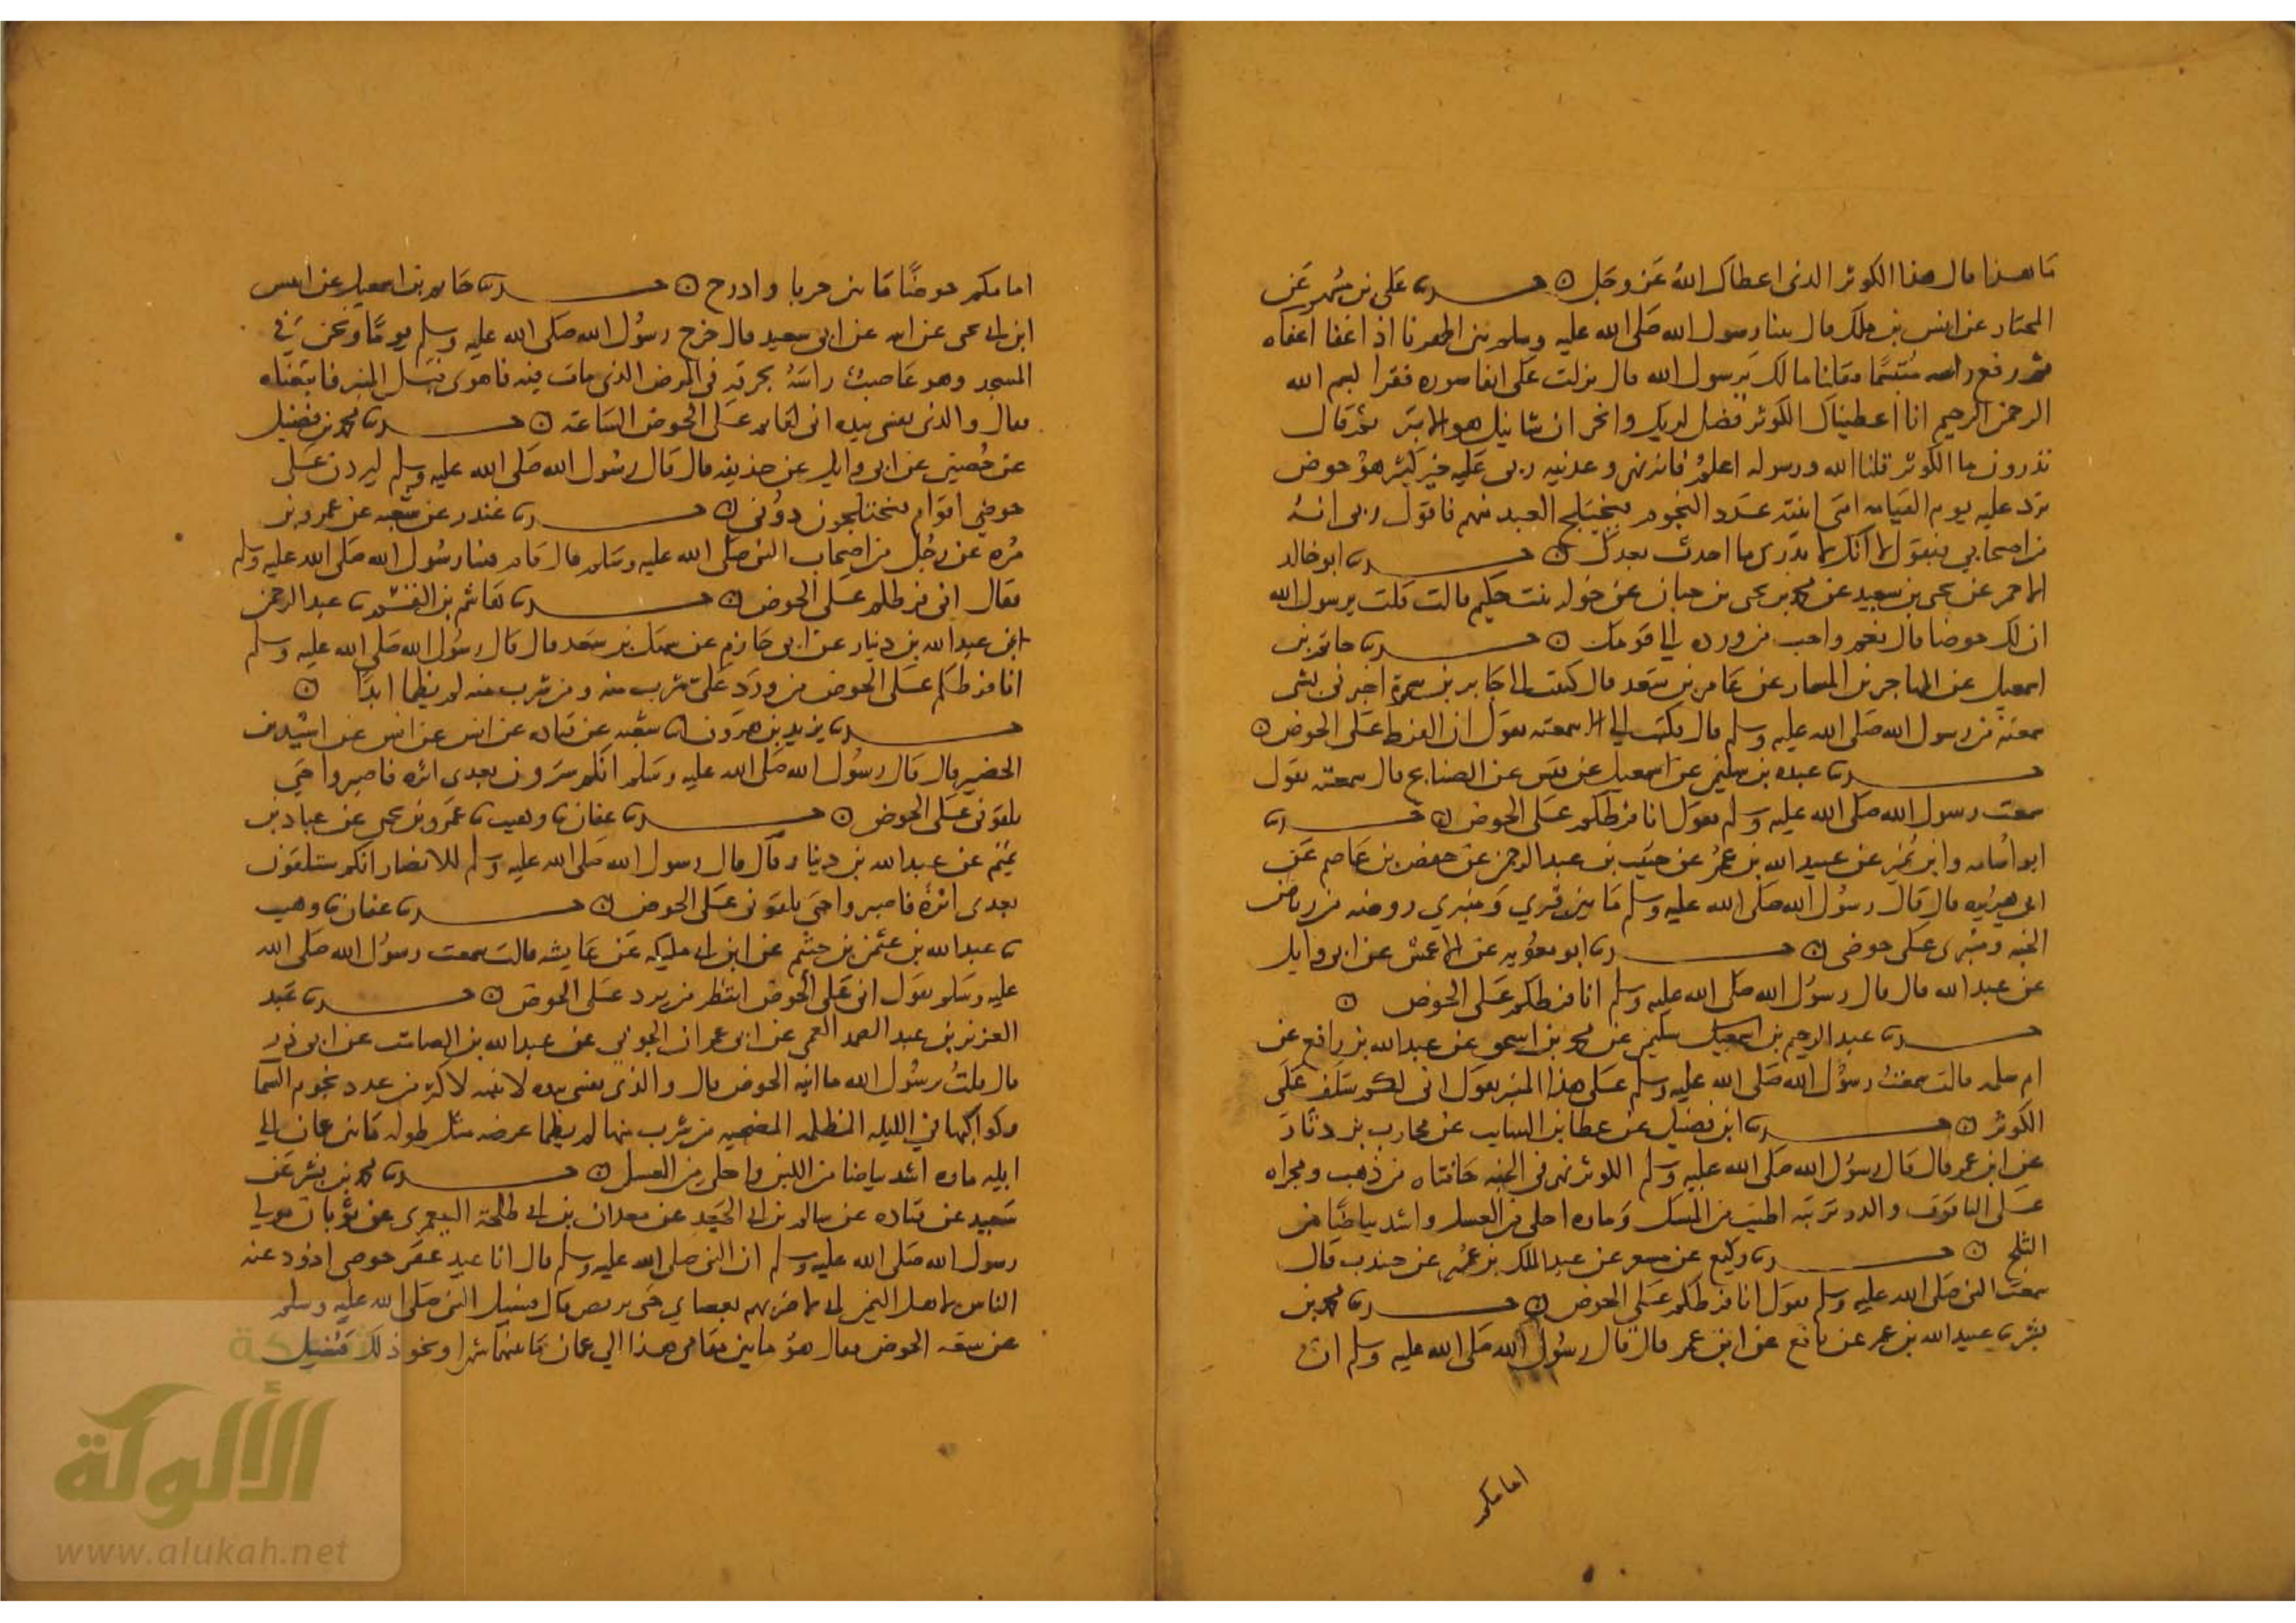 ما هذا قال هذا الكوثر الذي اعطاك الله عز وجل ۞ حدثنا علي بن مسهر عن
المختار عن انس بن ملك قال بينا رسول الله صلى الله عليه وسلم بين اظهرنا اذ اغفا اغفاه
ثم رفع راسه متبسما فقلنا مالك يرسول الله قال نزلت علي انفا سوره فقرا بسم الله
الرحمن الرحيم انا اعطيناك الكوثر فصل لربك وانحر ان شانيك هو الابتر ثم قال
تدرون ما الكوثر قلنا الله ورسوله اعلم قال فانه نهر وعدنيه ربي عليه خير كثير هو حوض
ترد عليه يوم القيامه امتي انيته عدد النجوم فيختلج العبد منهم فاقول ربي انه
من اصحابي فيقول لا انك لا تدري ما احدث بعدك ۞ حدثنا ابو خالد
الاحمر عن يحيى بن سعيد عن محمد بن يحيى بن حبان عن خوله بنت حكيم قالت قلت يرسول الله
ان لك حوضا قال نعم واحب من ورده الي قومك ۞ حدثنا حاتم بن
اسمعيل عن المهاجر بن المسمار عن عامر بن سعد قال كتبت الى جابر بن سمرة اخبرني بشي
سمعته من رسول الله صلى الله عليه وسلم قال فكتب الي سمعته يقول انا الفرط على الحوض ۞
حدثنا عبده بن سليمن عن اسمعيل عن قيس عن الصنابح قال سمعته يقول
سمعت رسول الله صلى الله عليه وسلم يقول انا فرطكم على الحوض ۞ حدثنا
ابو اسامه وابن نمير عن عبيد الله بن عمر عن حبيب بن عبد الرحمن عن حفص بن عاصم عن
ابي هريره قال قال رسول الله صلى الله عليه وسلم ما بين قبري ومنبري روضه من رياض
الجنه ومنبري على حوضي ۞ حدثنا ابو معويه عن الاعمش عن ابي وايل
عن عبد الله قال قال رسول الله صلى الله عليه وسلم انا فرطكم على الحوض ۞
حدثنا عبد الرحيم بن سليمن عن محمد بن اسحق عن عبد الله بن رافع عن
ام سلمه قالت سمعت رسول الله صلى الله عليه وسلم على هذا المنبر يقول اني لكم سلف على
الكوثر ۞ حدثنا ابن فضيل عن عطا بن السايب عن محارب بن دثار
عن ابن عمر قال قال رسول الله صلى الله عليه وسلم الكوثر نهر في الجنه حافتاه من ذهب ومجراه
على الياقوت والدر تربته اطيب من المسك وماوه احلى من العسل واشد بياضا من
الثلج ۞ حدثنا وكيع عن مسعر عن عبد الملك بن عمير عن جندب قال
سمعت النبي صلى الله عليه وسلم يقول انا فرطكم على الحوض ۞ حدثنا محمد بن
بشر ثنا عبيد الله بن عمر عن نافع عن ابن عمر قال قال رسول الله صلى الله عليه وسلم ان
امامكم
امامكم حوضا ما بين جربا واذرح ۞ حدثنا حاتم بن اسمعيل عن انيس
ابن ابي يحيى عن ابيه عن ابي سعيد قال خرج رسول الله صلى الله عليه وسلم يوما ونحن في
المسجد وهو عاصب راسه بخرقه في المرض الذي مات فيه فاهوى قبل المنبر فاتبعناه
فقال والذي نفسي بيده اني لقايم على الحوض الساعة ۞ حدثنا محمد بن فضيل
عن حصين عن ابي وايل عن حذيفه قال قال رسول الله صلى الله عليه وسلم ليردن على
حوضي اقوام فيختلجون دوني ۞ حدثنا غندر عن شعبه عن عمرو بن
مره عن رجل من اصحاب النبي صلى الله عليه وسلم قال قام فينا رسول الله صلى الله عليه وسلم
فقال اني فرطكم على الحوض ۞ حدثنا هاشم بن القسم ثنا عبد الرحمن
ابن عبد الله بن دينار عن ابي حازم عن سهل بن سعد قال قال رسول الله صلى الله عليه وسلم
انا فرطكم على الحوض من ورد علي شرب منه ومن شرب منه لم يظما ابدا ۞
حدثنا يزيد بن هرون ثنا شعبه عن قتاده عن انس عن انس عن اسيد بن
الحضير قال قال رسول الله صلى الله عليه وسلم انكم سترون بعدي اثره فاصبروا حتى
تلقوني على الحوض ۞ حدثنا عفان ثنا وهيب ثنا عمرو بن يحيى عن عباد بن
تميم عن عبد الله بن دينار قال قال رسول الله صلى الله عليه وسلم للانصار انكم ستلقون
بعدي اثرة فاصبروا حتى تلقوني على الحوض ۞ حدثنا عفان ثنا وهيب
ثنا عبد الله بن عثمن بن خثيم عن ابن ابي مليكه عن عايشه قالت سمعت رسول الله صلى الله
عليه وسلم يقول اني على الحوض انتظر من يرد على الحوض ۞ حدثنا عبد
العزيز بن عبد الصمد العمي عن ابي عمران الجوني عن عبد الله بن الصامت عن ابي ذر
قال قلت يرسول الله ما انيه الحوض قال والذي نفسي بيده لانيته لاكثر من عدد نجوم السما
وكواكبها في الليله المظلمه المصحيه من شرب منها لم يظما عرضه مثل طوله ما بين عمان الى
ايله ماوه اشد بياضا من اللبن واحلى من العسل ۞ حدثنا محمد بن بشر عن
سعيد عن قتاده عن سالم بن ابي الجعد عن معدان بن ابي طلحة اليعمري عن ثوبان مولى
رسول الله صلى الله عليه وسلم ان النبي صلى الله عليه وسلم قال انا عند عقر حوضي اذود عنه
الناس لاهل اليمن اني لاضربهم بعصاي حتى يرفض قال فسيل النبي صلى الله عليه وسلم
عن سعه الحوض فقال هو ما بين مقامي هذا الى عمان ما بينهما شهر او نحو ذلك فسيل
شبكة
الألوكة
www.alukah.net